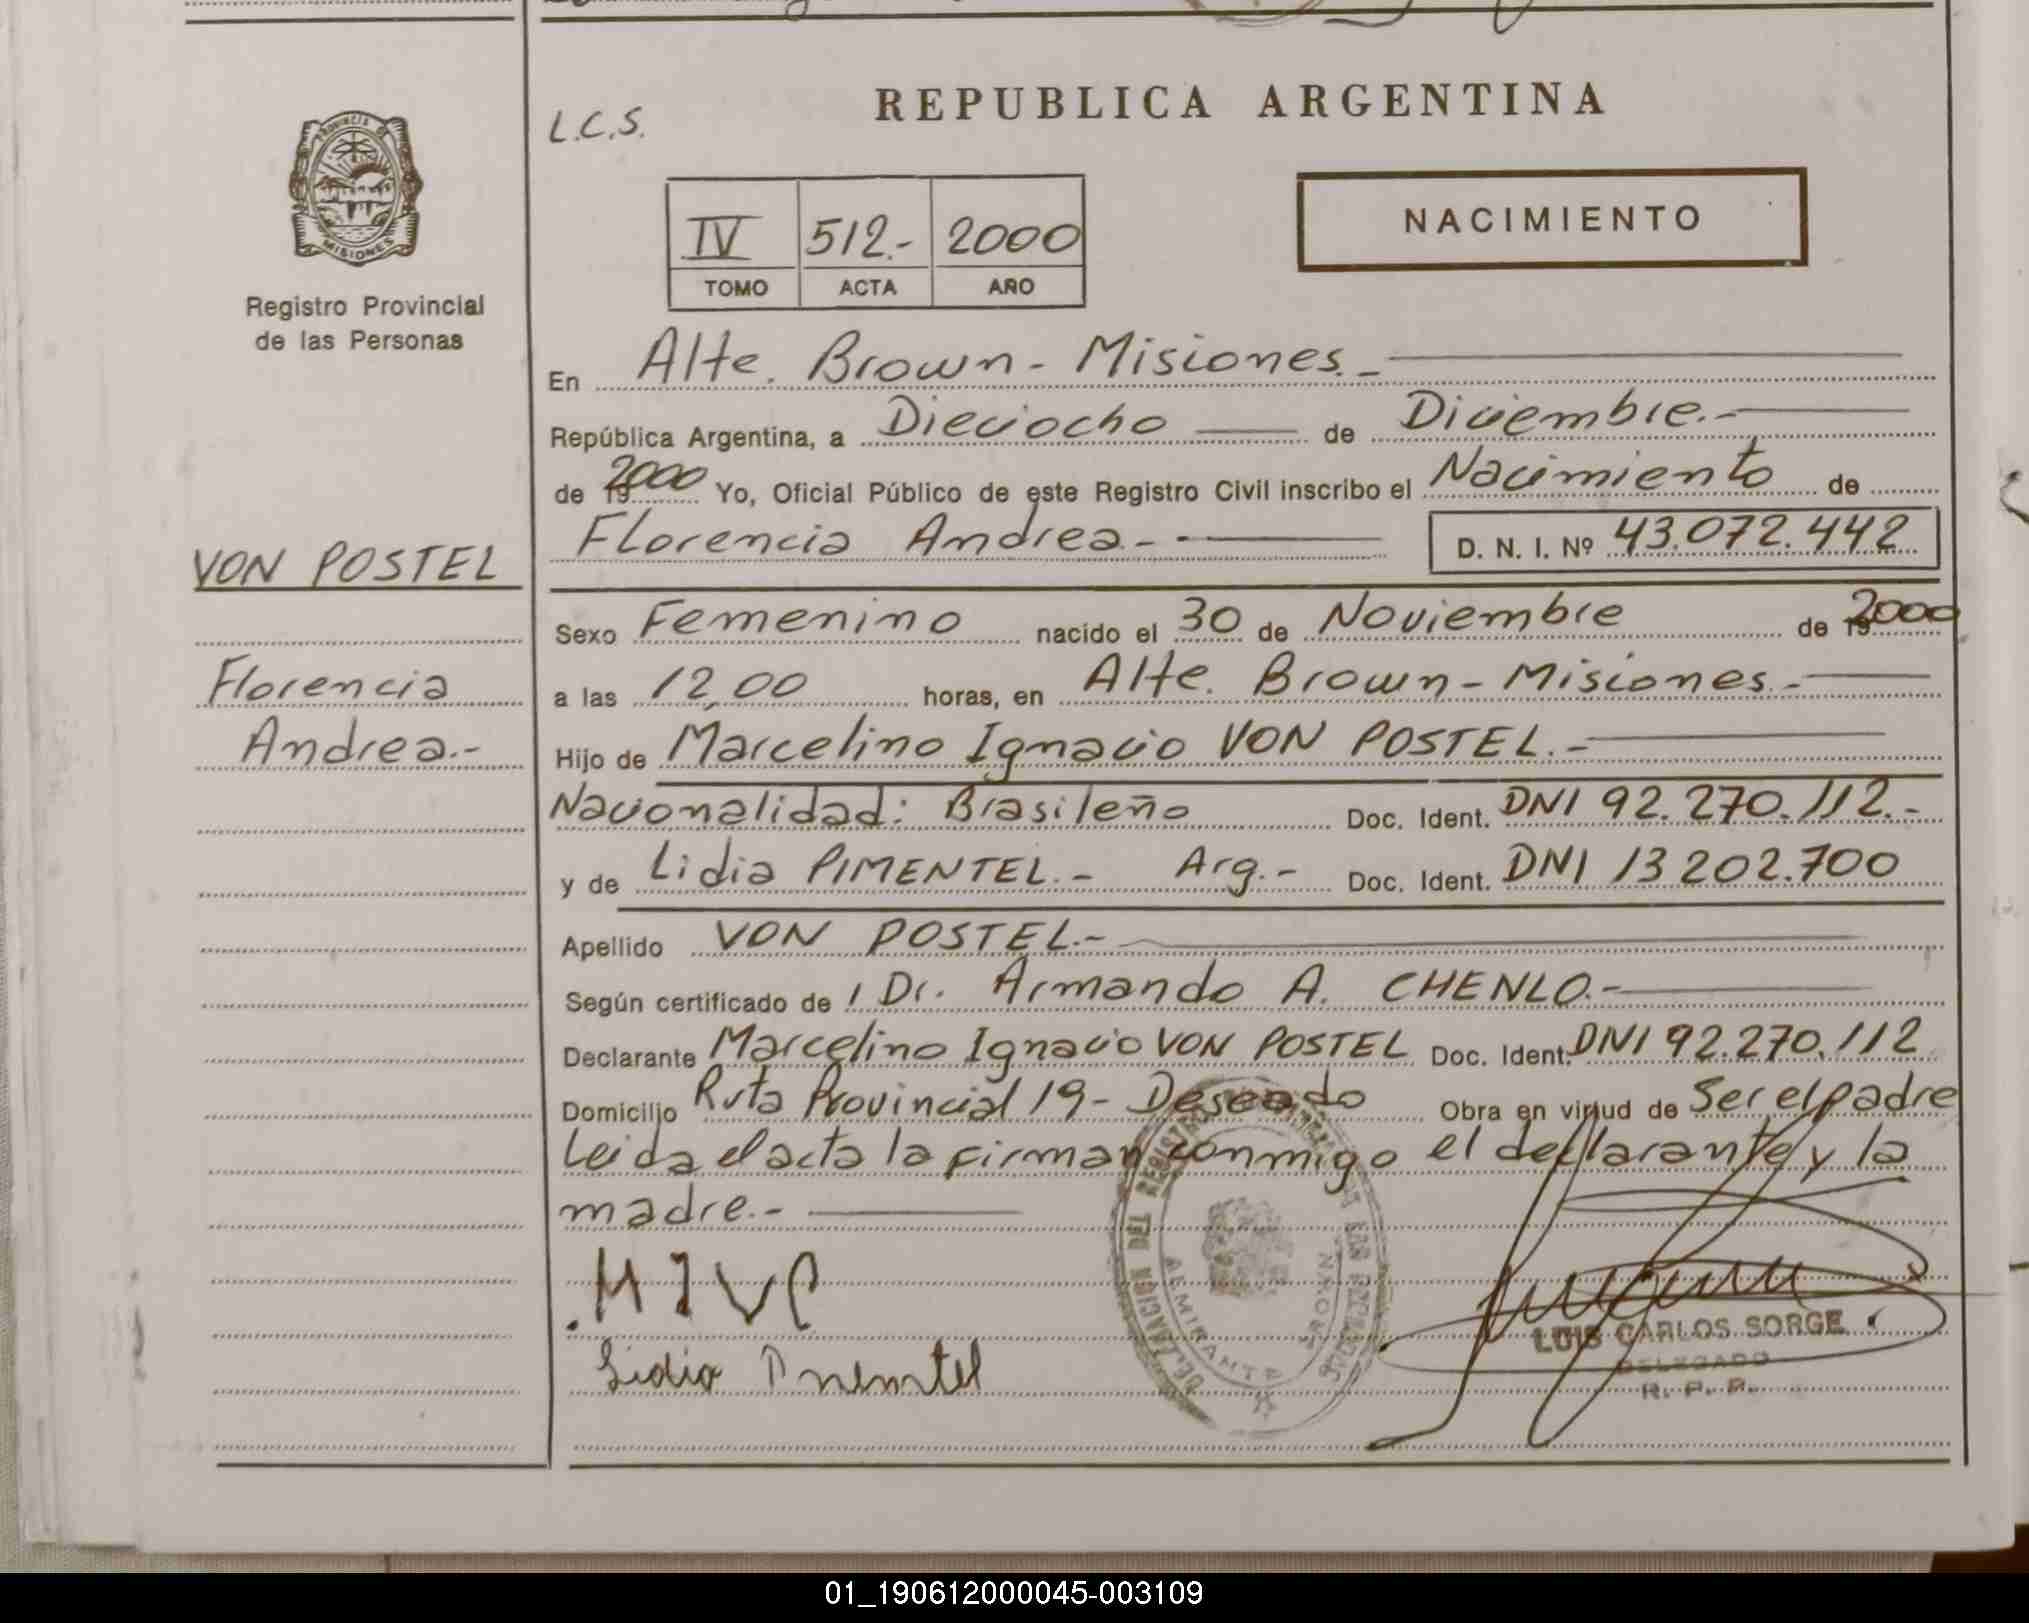 L.C.S.
REPUBLICA ARGENTINA
PROVINCIA DE
MISIONES
NACIMIENTO
IV 512.- 2000
TOMO ACTA AÑO
Registro Provincial
de las Personas
En Alte. Brown - Misiones.-
República Argentina, a Dieciocho de Diciembre.-
de 19 2000 Yo, Oficial Público de este Registro Civil inscribo el Nacimiento de
Florencia Andrea.- D. N. I. Nº 43.072.442
VON POSTEL
Sexo Femenino nacido el 30 de Noviembre de 19 2000
Florencia
a las 12,00 horas, en Alte. Brown - Misiones.-
Andrea.-
Hijo de Marcelino Ignacio VON POSTEL.-
Nacionalidad: Brasileño Doc. Ident. DNI 92.270.112.-
y de Lidia PIMENTEL.- Arg.- Doc. Ident. DNI 13202.700
Apellido VON POSTEL.-
Según certificado de / Dr. Armando A. CHENLO.-
Declarante Marcelino Ignacio VON POSTEL Doc. Ident. DNI 92.270.112
Domicilio Ruta Provincial 19 - Deseado Obra en virtud de Ser el padre
Leida el acta la firman conmigo el declarante y la
madre.-
MIVP
Lidia Pimentel
DELEGACION DEL REGISTRO PROVINCIAL DE LAS PERSONAS
ALMIRANTE BROWN
LUIS CARLOS SORGE
DELEGADO
R. P. P.
01_190612000045-003109